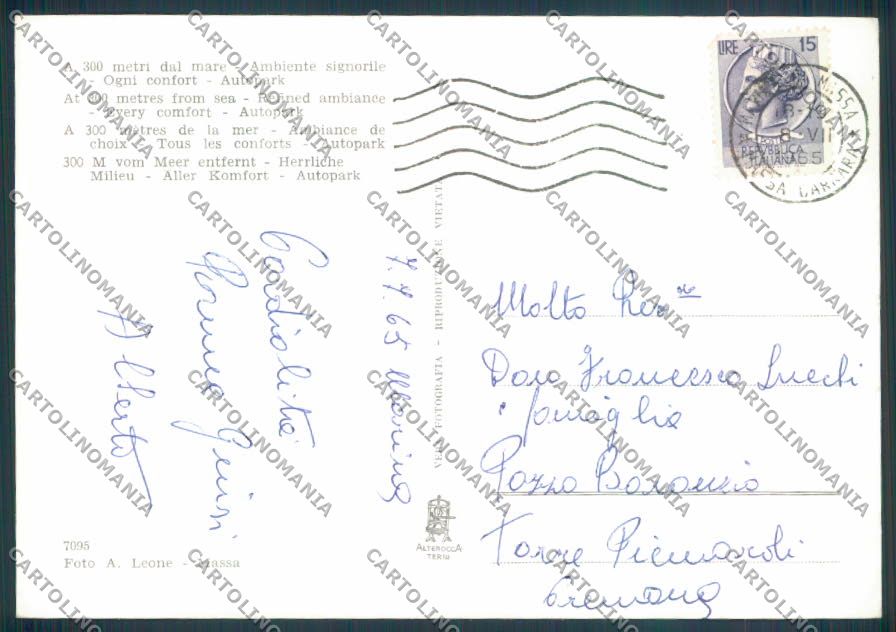 A 300 metri dal mare - Ambiente signorile
- Ogni confort - Autopark
At 300 metres from sea - Refined ambiance
- Every comfort - Autopark
A 300 mètres de la mer - Ambiance de
choix - Tous les conforts - Autopark
300 M vom Meer entfernt - Herrliche
Milieu - Aller Komfort - Autopark
LIRE 15
REPUBBLICA
ITALIANA
MASSA CARRARA
8-VII
65
7.7.65 Marina
Cordialità
Alberto
7095
Foto A. Leone - Massa
VERA FOTOGRAFIA - RIPRODUZIONE VIETATA
ALTEROCCA
TERNI
Molto Rev.
Francesco
famiglia
Torre Picenardi
Cremona
CARTOLINOMANIA